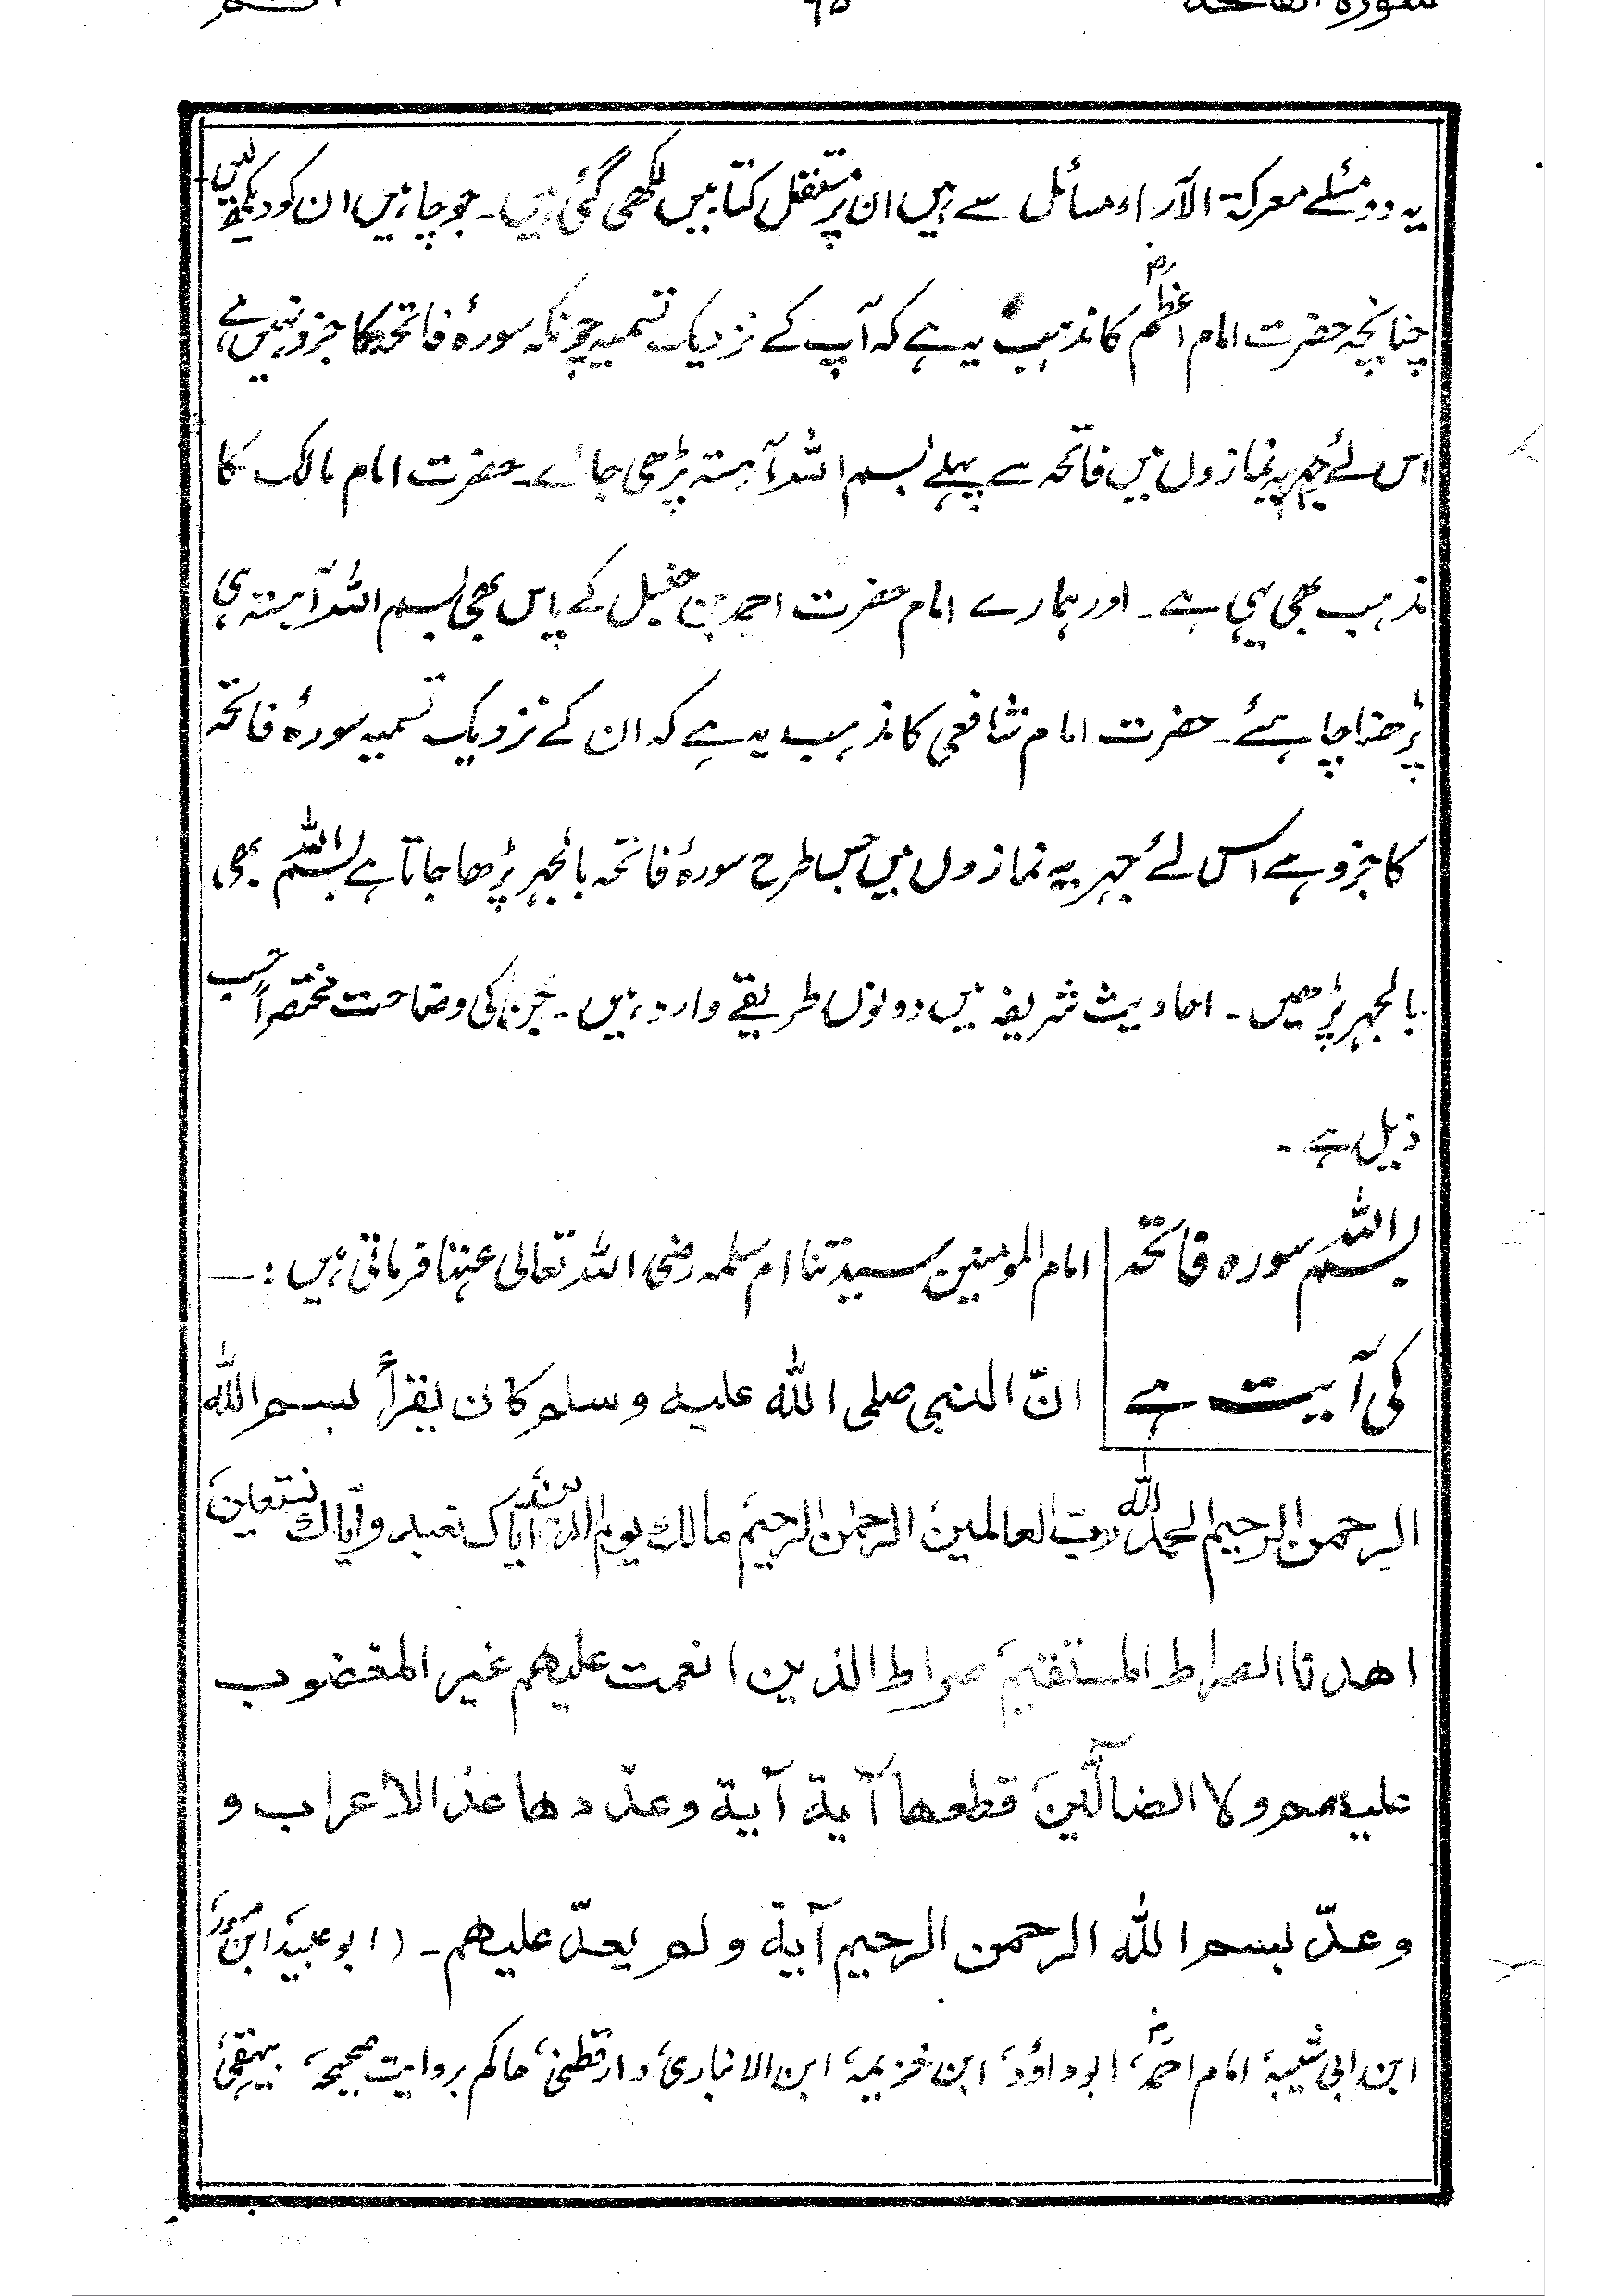 سورۃ الفاتحہ ۶۵
یہ دو مسئلے معرکۃ الآراء مسائل سے ہیں ان پر مستقل کتابیں لکھی گئی ہیں۔ جو چاہیں ان کو دیکھ لیں
چنانچہ حضرت امام اعظمؒ کا مذہب یہ ہے کہ آپ کے نزدیک تسمیہ چونکہ سورۂ فاتحہ کا جزو نہیں ہے
اس لئے جہریہ نمازوں میں فاتحہ سے پہلے بسم اللہ آہستہ پڑھی جائے۔ حضرت امام مالک کا
مذہب بھی یہی ہے۔ اور ہمارے امام حضرت احمد بن حنبل کے پاس بھی بسم اللہ آہستہ ہی
پڑھنا چاہئے۔ حضرت امام شافعی کا مذہب یہ ہے کہ ان کے نزدیک تسمیہ سورۂ فاتحہ
کا جزو ہے اس لئے جہریہ نمازوں میں جس طرح سورۂ فاتحہ بالجہر پڑھا جاتا ہے بسم اللہ بھی
بالجہر پڑھیں۔ احادیث شریفہ میں دونوں طریقے وارد ہیں۔ جن کی وضاحت مختصراً حسب
ذیل ہے۔
بسم اللہ سورہ فاتحہ امام المومنین سیدتنا ام سلمہ رضی اللہ تعالی عنہا فرماتی ہیں :—
کی آیت ہے انّ النبی صلی اللہ علیہ وسلم کان یقرأ بسم اللہ
الرحمن الرحیم الحمد للہ رب العالمین الرحمٰن الرحیم مالک یوم الدین ایّاک نعبد وایّاک نستعین
اھدنا الصراط المستقیم صراط الذین انعمت علیھم غیر المغضوب
علیھم ولا الضآلّین قطعھا آیۃ آیۃ وعدّدھا عدّ الاعراب و
وعدّ بسم اللہ الرحمن الرحیم آیۃ ولم یعدّ علیھم۔ (ابو عبید، ابن
ابن ابی شیبہ، امام احمدؒ، ابوداؤد، ابن خزیمہ، ابن الانباری، دارقطنی، حاکم بروایت صحیحہ، بیہقی،